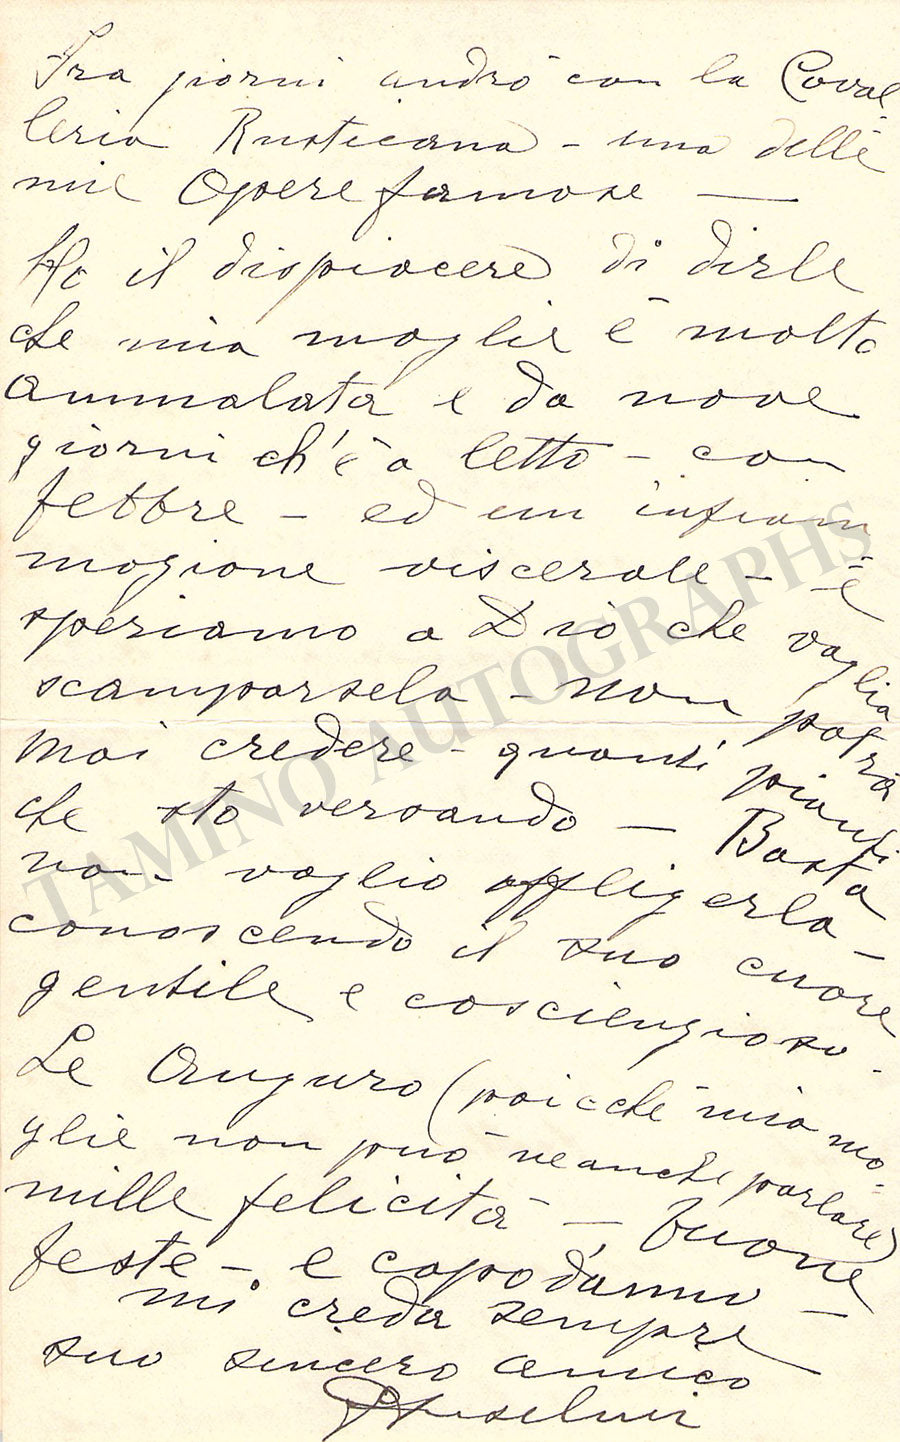 Fra giorni andrò con la Caval
leria Rusticana - una delle
mie Opere famose —
Ho il dispiacere di dirle
che mia moglie è molto
ammalata e da nove
giorni ch'è a letto - con
febbre - ed un infiam
mazione viscerale - è
speriamo a Dio che voglia
scamparsela - non potrà
mai credere - quanti pianti
che sto versando — Basta
non voglio affligerla -
conoscendo il suo cuore
gentile e coscienzioso -
Le Auguro (poicchè mia mo
glie non può neanche parlare)
mille felicità - buone
feste - e capo d'anno -
mi creda sempre
suo sincero amico
Anselmi
TAMINO AUTOGRAPHS